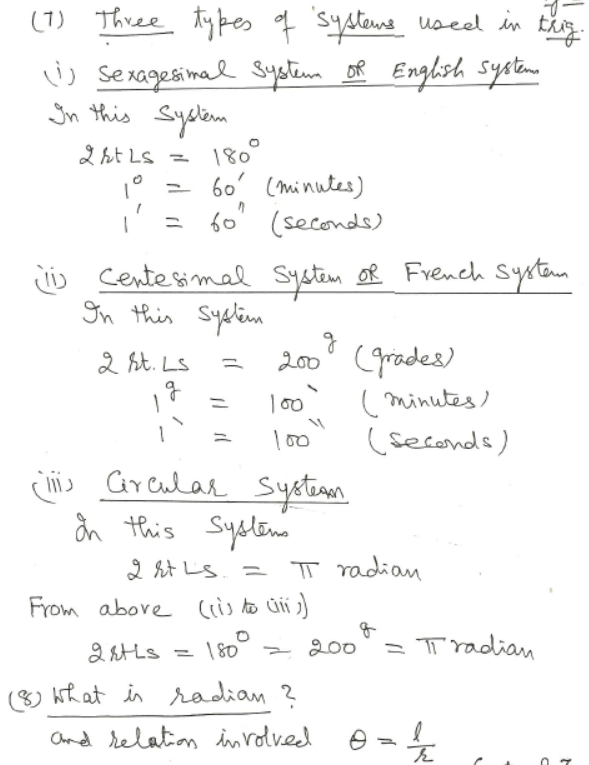 (7) Three types of systems used in trig.
(i) Sexagesimal System OR English System
In this System
2 rt ∠s = 180°
1° = 60′ (minutes)
1′ = 60″ (seconds)
(ii) Centesimal System OR French System
In this System
2 rt. ∠s = 200ᵍ (grades)
1ᵍ = 100‵ (minutes)
1‵ = 100‶ (seconds)
(iii) Circular System
In this System
2 rt ∠s. = π radian
From above ((i) to (iii))
2 rt∠s = 180° = 200ᵍ = π radian
(8) What is radian ?
and relation involved θ = l/r